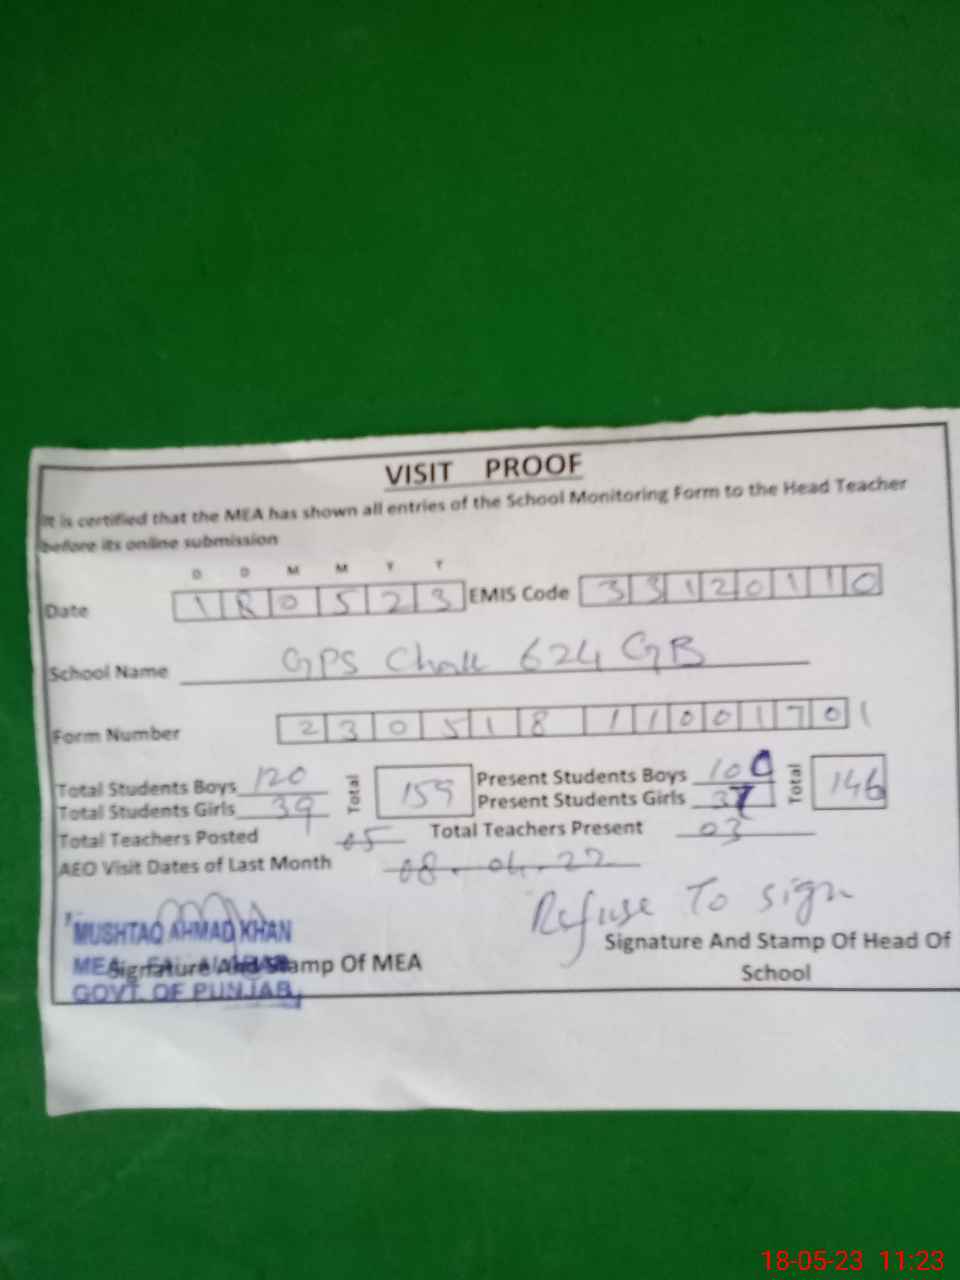 VISIT PROOF
It is certified that the MEA has shown all entries of the School Monitoring Form to the Head Teacher
before its online submission
D D M M Y Y
Date 180523 EMIS Code 33120110
School Name GPS Chak 624 GB
Form Number 230518 1100170 1
Total Students Boys 120 Total 159 Present Students Boys Total 146
Total Students Girls 39 Present Students Girls 37
Total Teachers Posted 05 Total Teachers Present 03
AEO Visit Dates of Last Month 08.04.22
Refuse To sign
MUSHTAQ AHMAD KHAN
Signature And Stamp Of Head Of
School
MEA
Signature And Stamp Of MEA
GOVT. OF PUNJAB
18-05-23 11:23